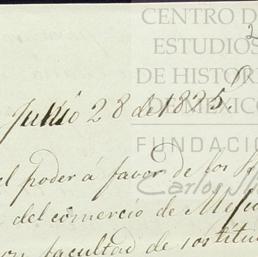 CENTRO DE
ESTUDIOS
DE HISTORIA
DE MEXICO
FUNDACI
Carlos Sl
Julio 28 de 1825.
el poder á favor de los
del comercio de Mexi
facultad de sostitu